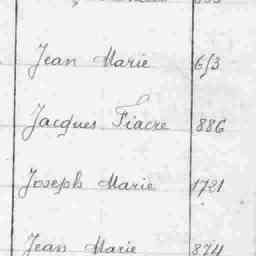 Jean Marie 653
Jacques Fiacre 886
Joseph Marie 1721
Jean Marie 874